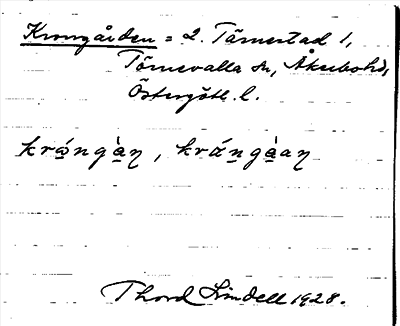 Krongården = 2. Tärnestad 1,
Törnevalla sn, Åkerbo hd,
Östergötl. l.
krǿngàŋ, krángàaŋ
Thord Lindell 1928.